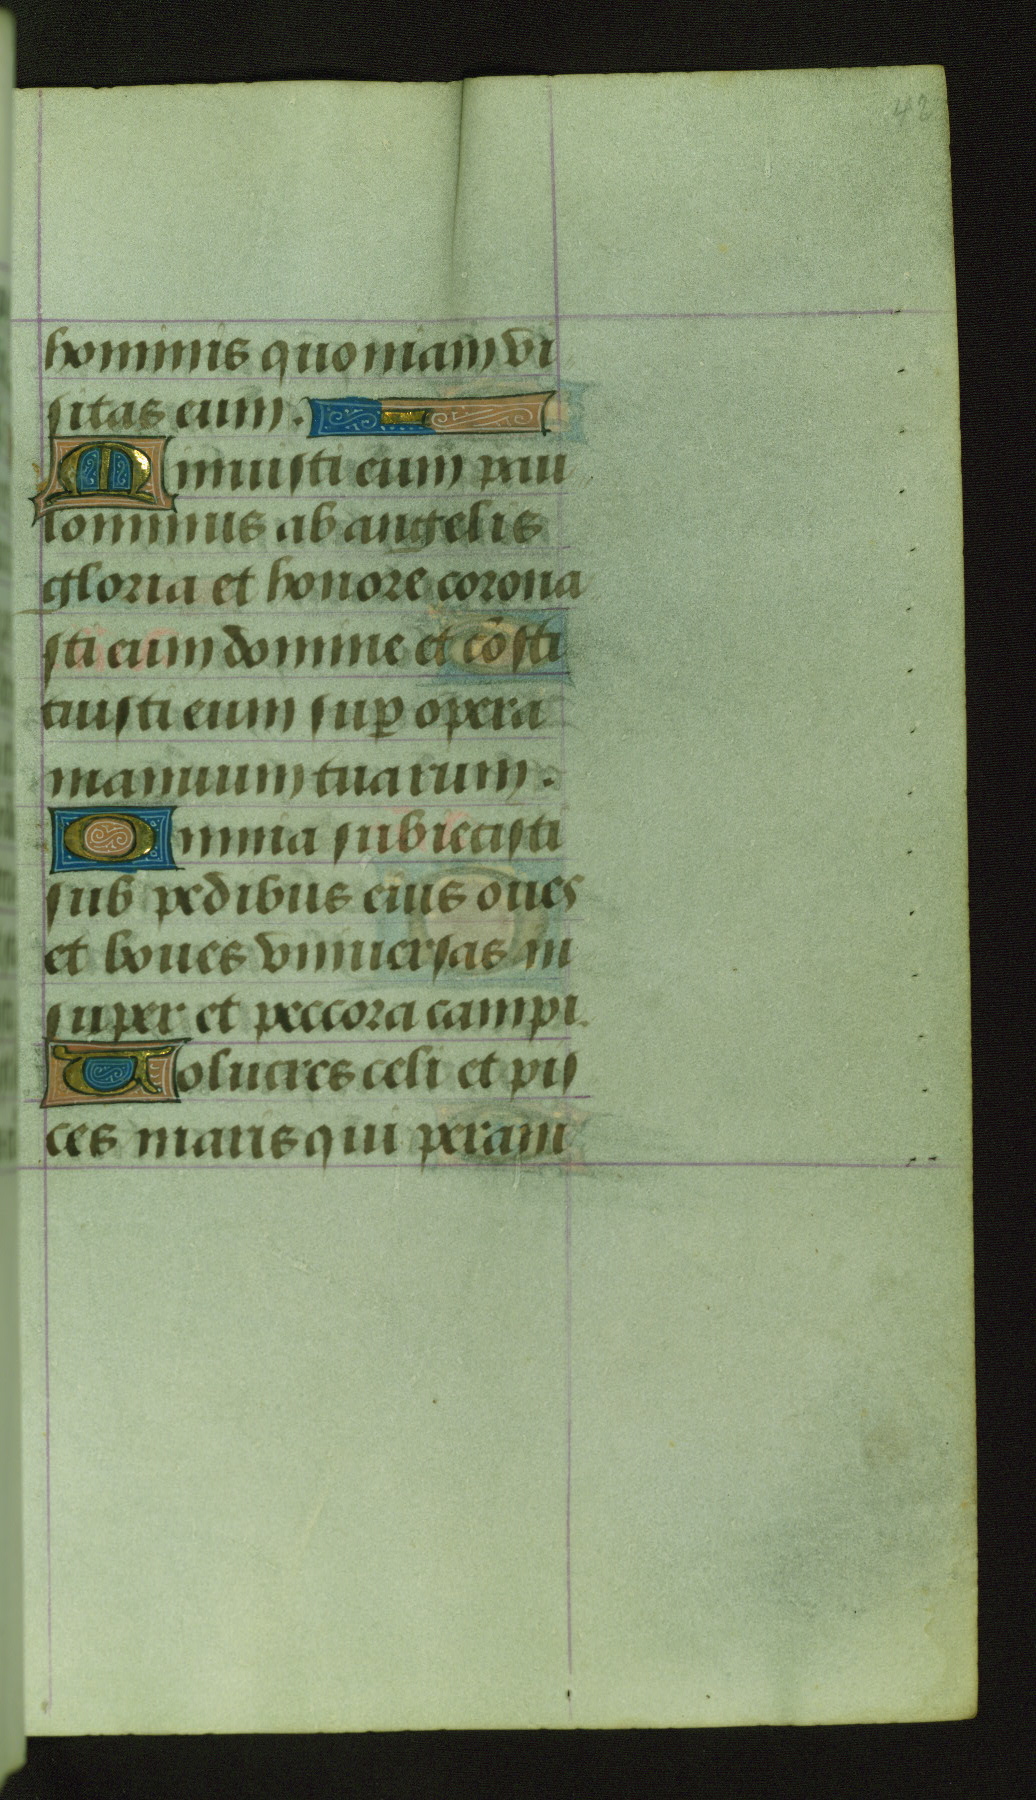 42
hominis quoniam vi
sitas eum.
Minuisti eum pau
lominus ab angelis
gloria et honore corona
sti eum domine et cōsti
tuisti eum suꝑ opera
manuum tuarum.
Omnia subiecisti
sub pedibus eius oues
et boues vniuersas in
super et peccora campi.
Volucres celi et pis
ces maris qui peram